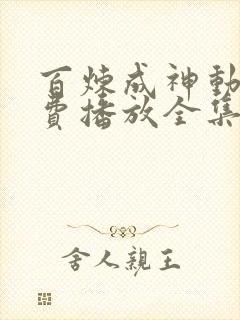 百炼成神动
费播放全集
舍人亲王